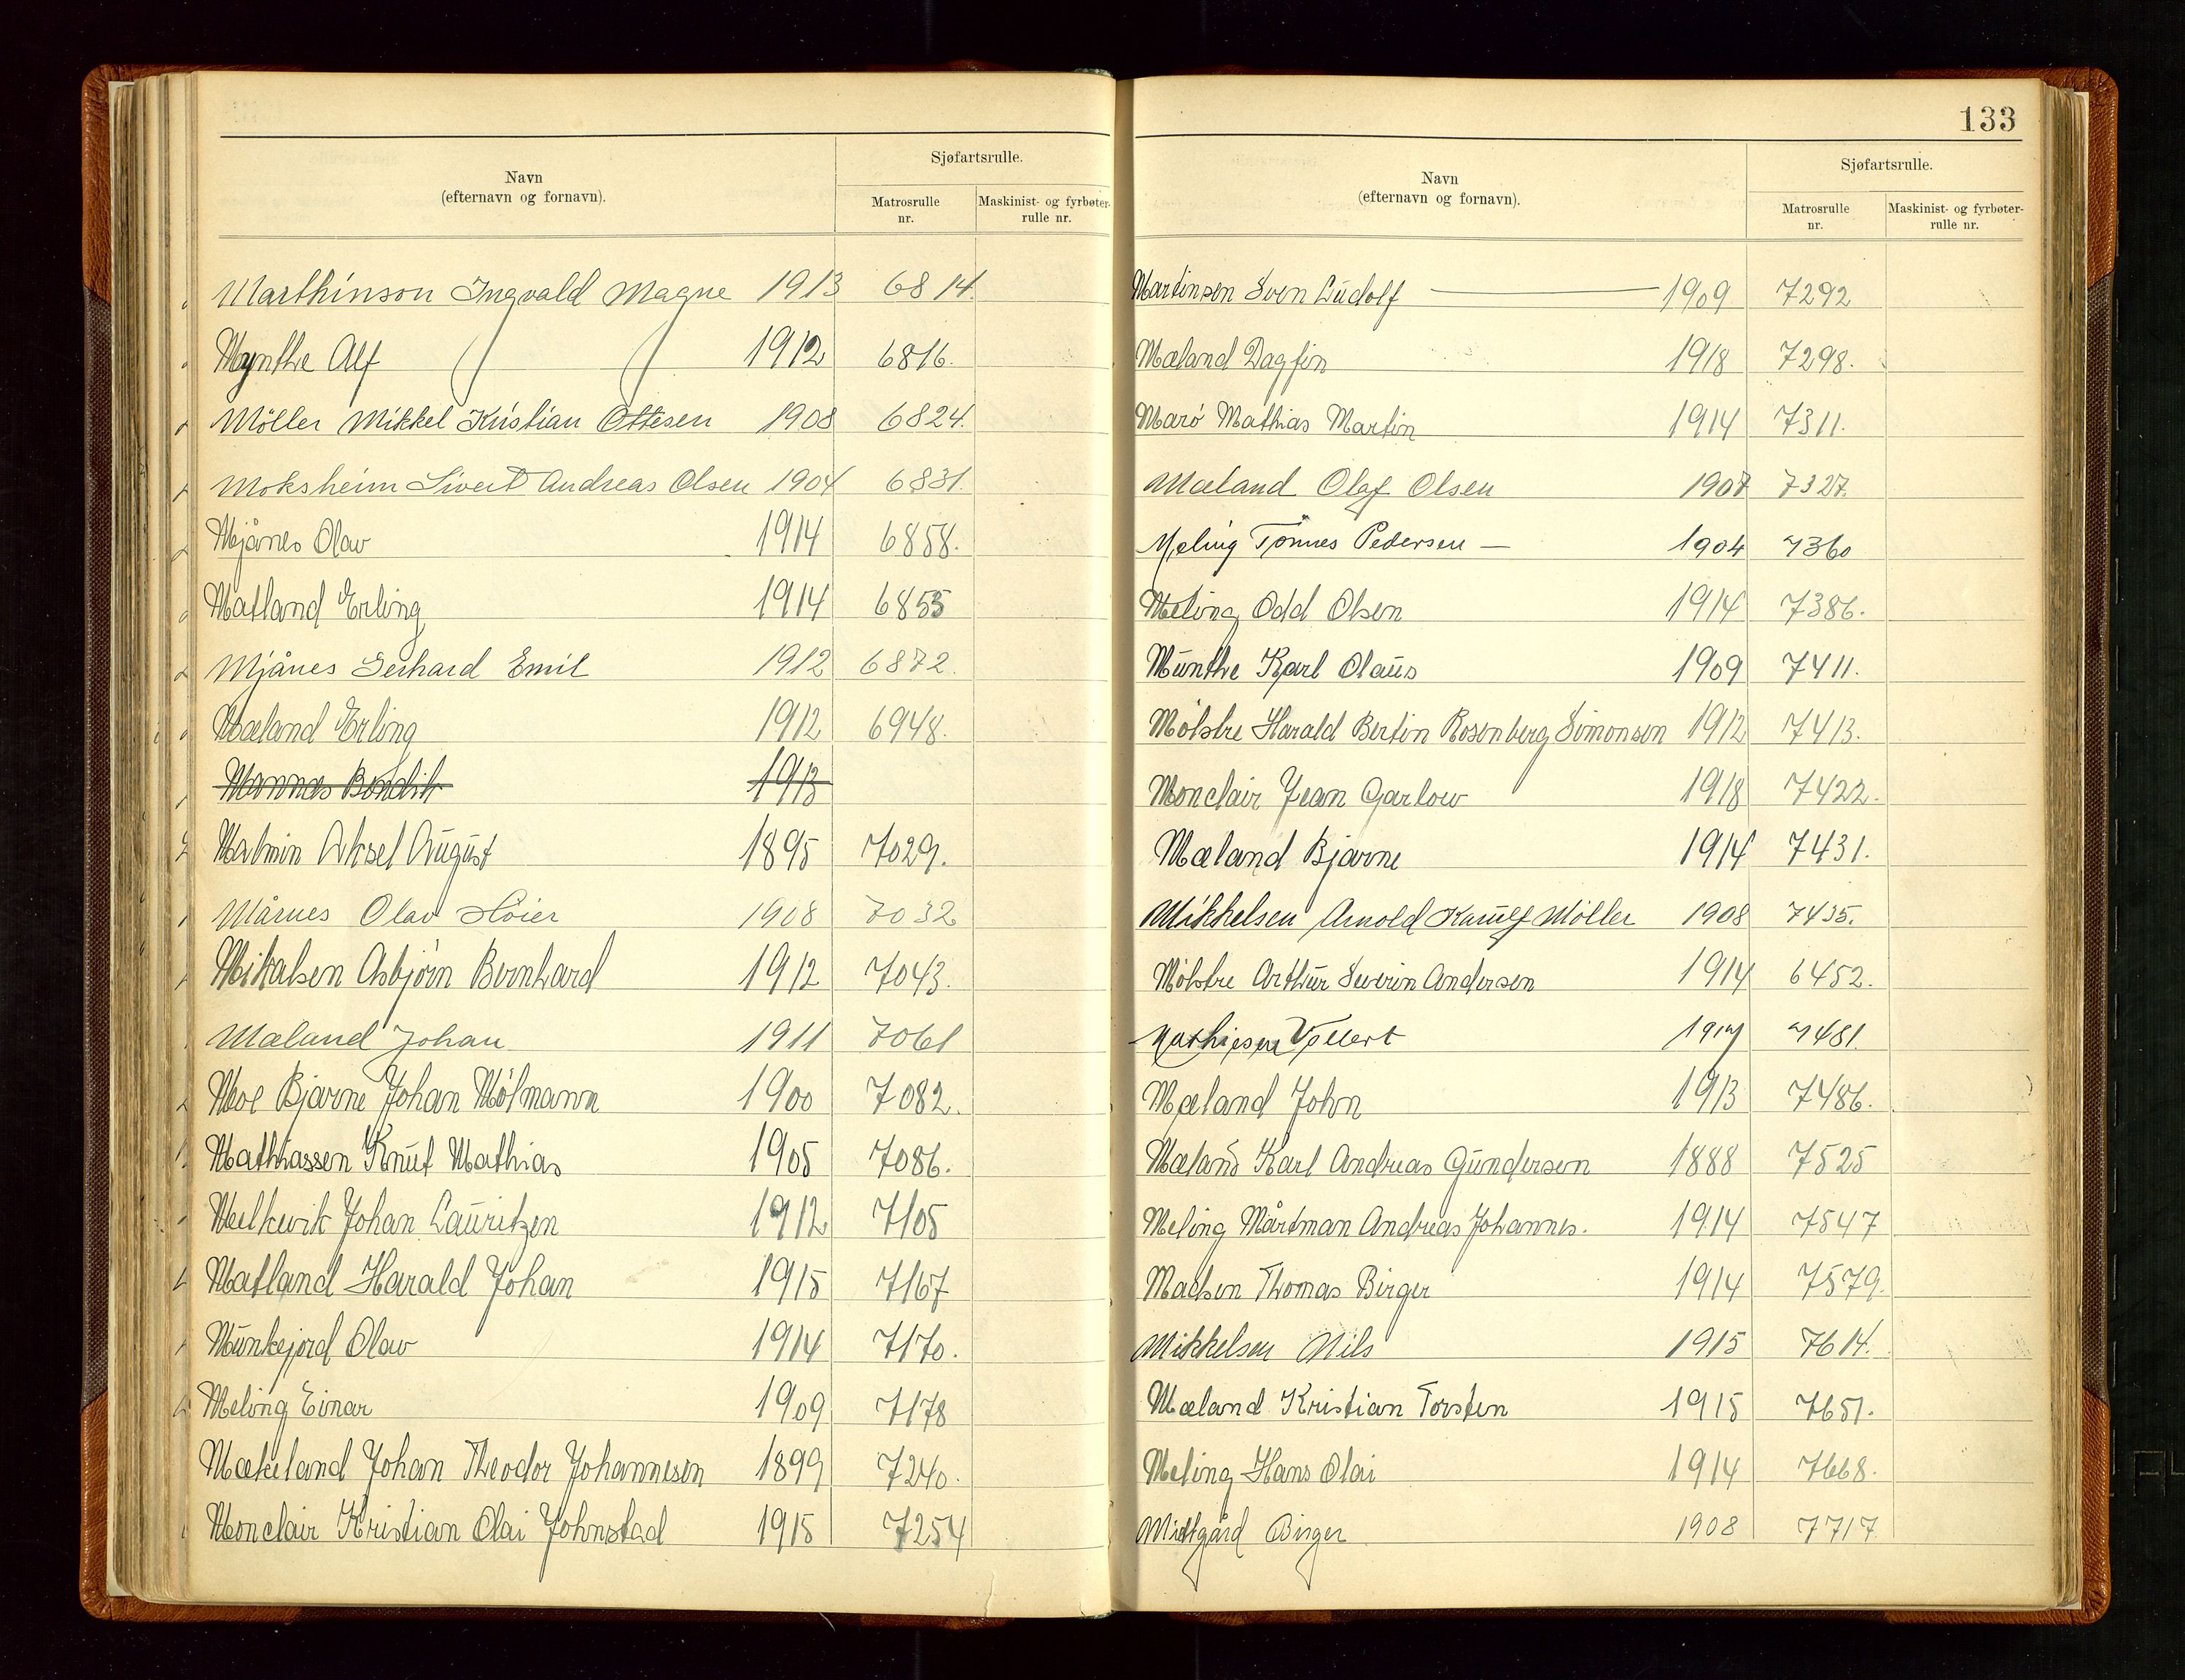 Navn
(efternavn og fornavn).
Sjøfartsrulle.
Matrosrulle
nr.
Maskinist- og fyrbøter-
rulle nr.
Marthinson Ingvald Magne 1913 6814.
Mynthe Alf 1912 6816.
Möller Mikkel Kristian Ottesen 1908 6824.
Moksheim Sivert Andreas Olsen 1904 6831.
Mjånes Olav 1914 6858.
Matland Erling 1914 6855
Mjånes Gerhard Emil 1912 6872.
Mæland Erling 1912 6948.
Mannes Bendik 1913
Malmin Aksel August 1895 7029.
Mårnes Olav Höier 1908 7032
Mikalsen Asbjörn Bernhard 1912 7043.
Mæland Johan 1911 7061
Moe Bjarne Johan Mölmann 1900 7082.
Mathiassen Knut Mathias 1905 7086.
Melkevik Johan Lauritzen 1912 7105
Matland Harald Johan 1915 7167
Munkejord Olav 1914 7170.
Meling Einar 1909 7178
Mækeland Johan Theodor Johannesen 1899 7240.
Monclair Kristian Olai Johnstad 1915 7254
133
Navn
(efternavn og fornavn).
Sjøfartsrulle.
Matrosrulle
nr.
Maskinist- og fyrbøter-
rulle nr.
Martinsen Sven Ludolf — 1909 7292
Mæland Dagfin 1918 7298.
Marö Mathias Martin 1914 7311.
Mæland Olaf Olsen 1907 7327.
Meling Tönnes Pedersen — 1904 7360
Meling Odd Olsen 1914 7386.
Munthe Karl Olaus 1909 7411.
Mölstre Harald Bertin Rosenberg Simonsen 1912 7413.
Monclair Jean Garlow 1918 7422.
Mæland Bjarne 1914 7431.
Mikkelsen Arnold Møller 1908 7435.
Mölstre Arthur Severin Andersen 1914 6452.
Mathiesen Vollert 1917 7481.
Mæland John 1913 7486.
Mæland Karl Andreas Gundersen 1888 7525
Meling Mårtman Andreas Johannes. 1914 7547
Madsen Thomas Birger 1914 7579.
Mikkelsen Nils 1915 7614.
Mæland Kristian Torsten 1915 7651.
Meling Hans Olai 1914 7668.
Midtgård Birger 1908 7717